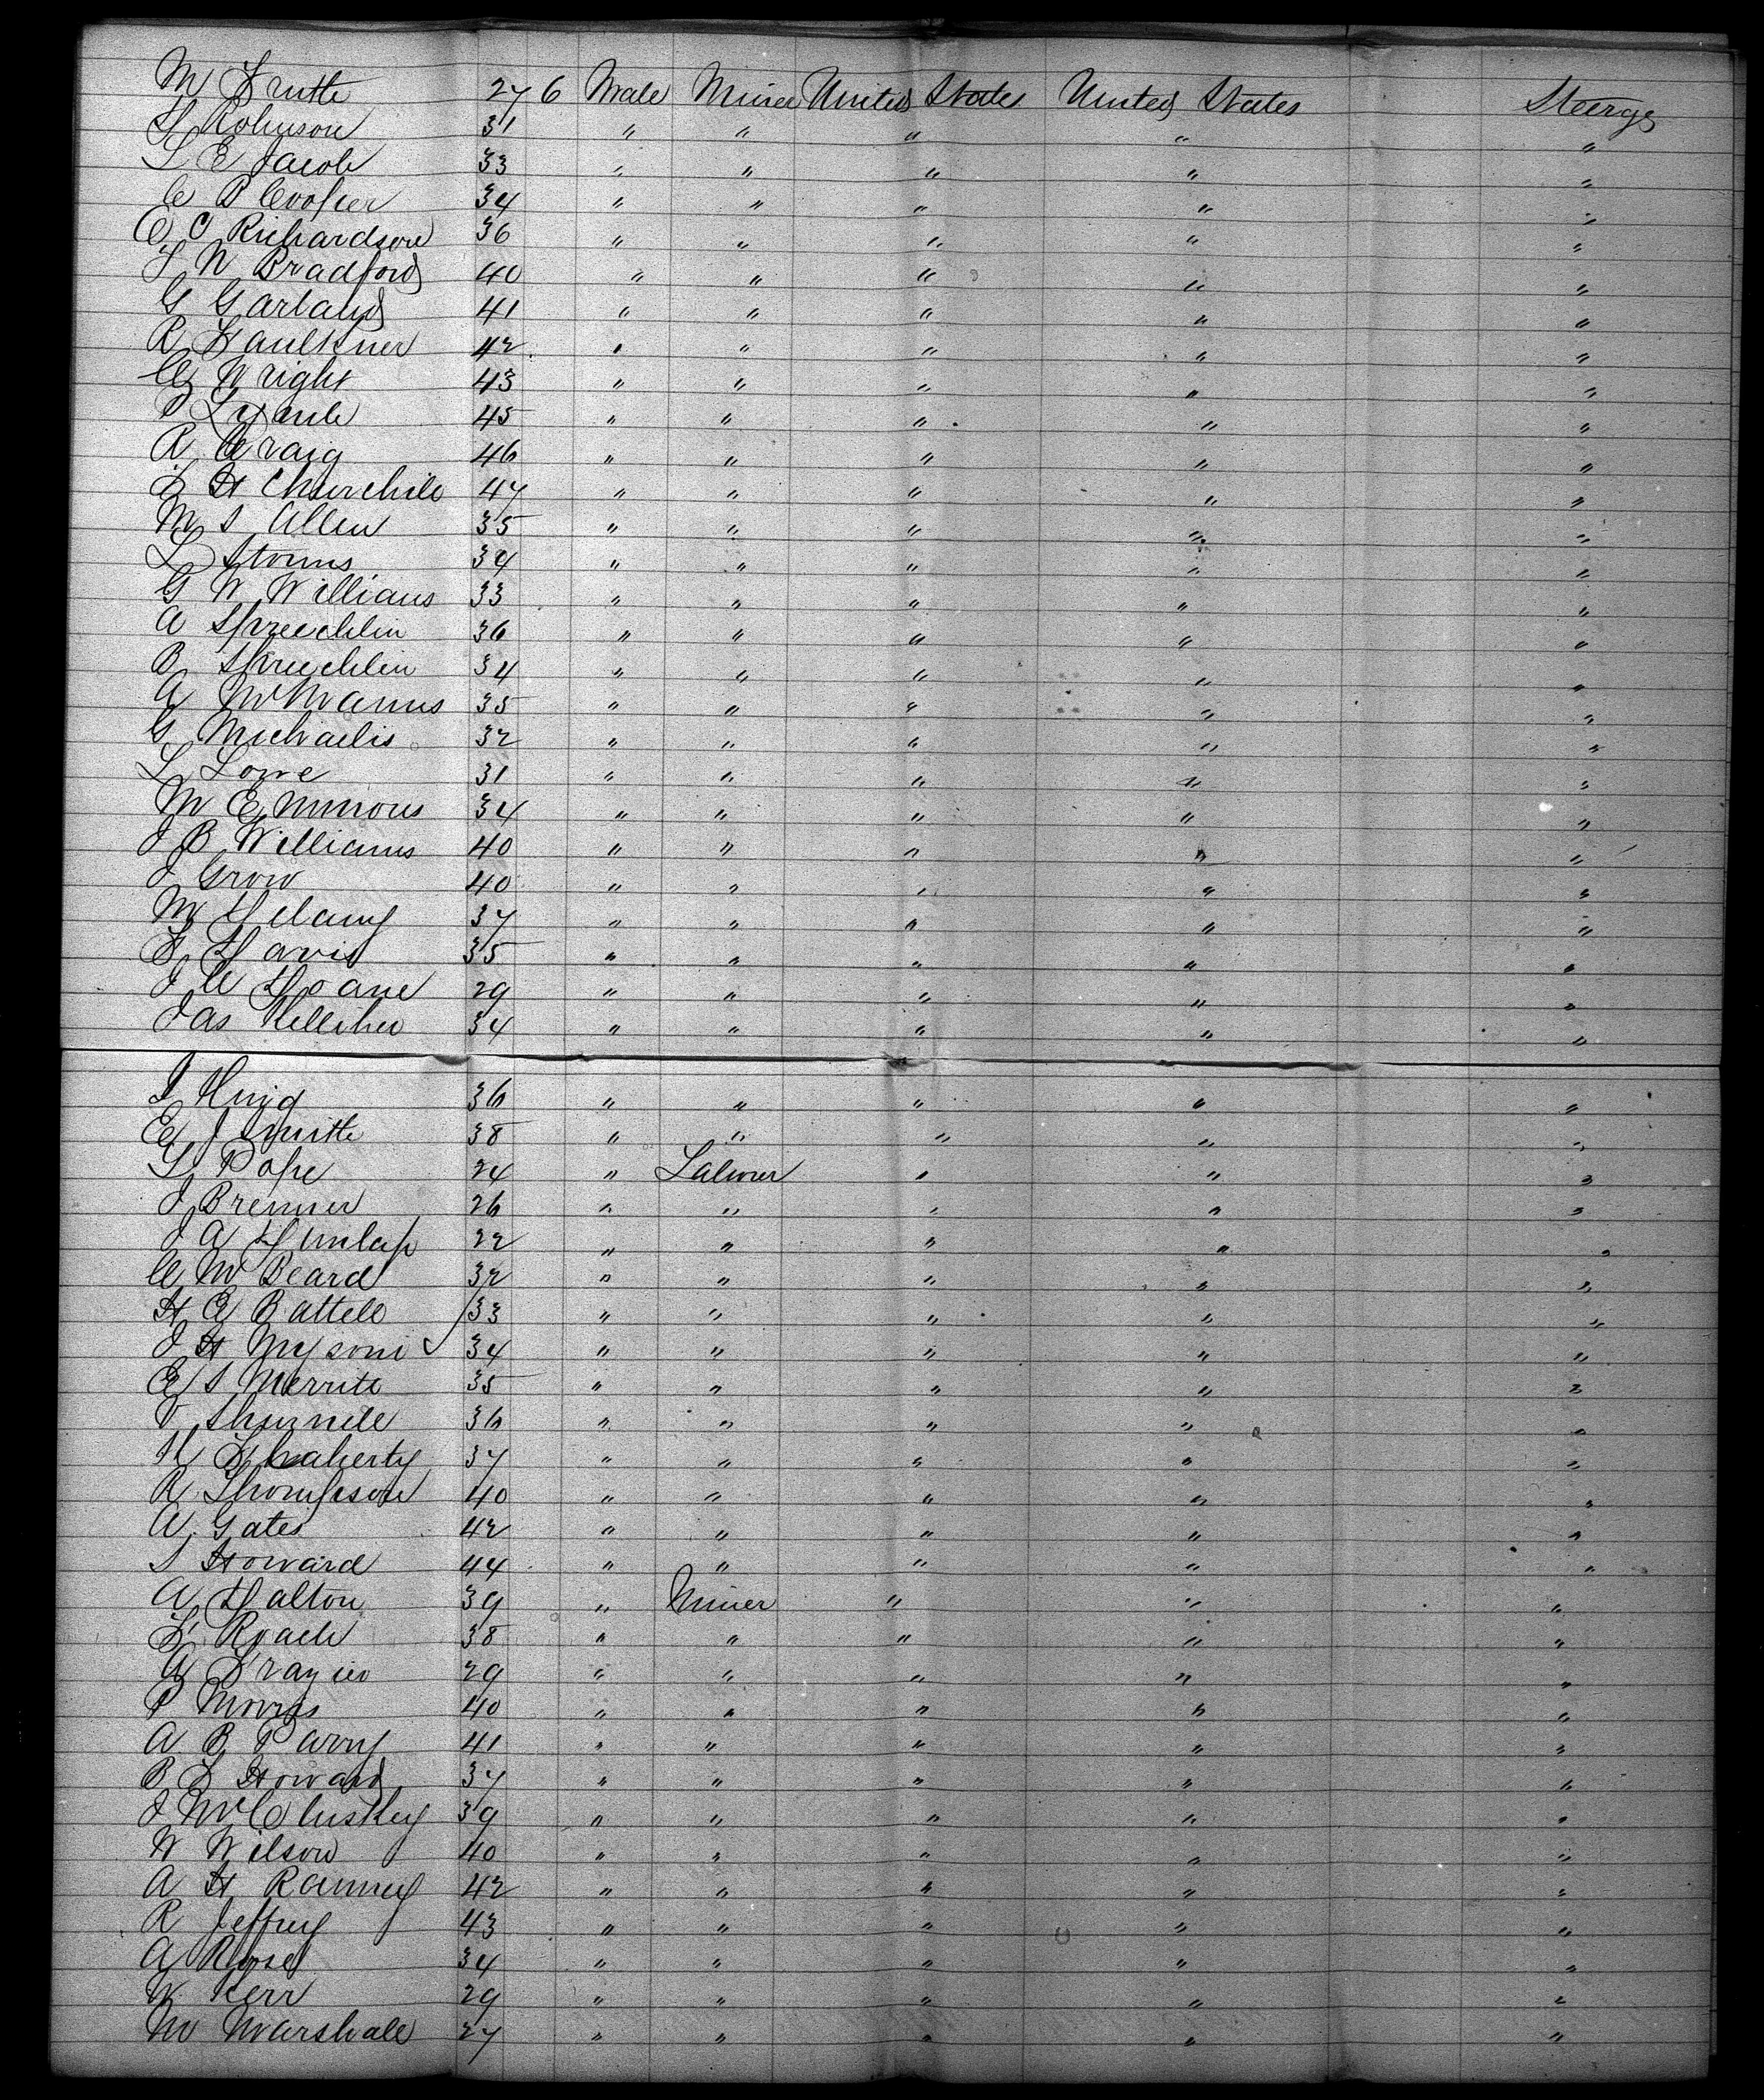 M Frutte 27 6 Male Miner United States United States Steerge
H Robinson 31 " " " " "
L E Jacob 33 " " " " "
C P Cooper 34 " " " " "
E C Richardson 36 " " " " "
T W Bradford 40 " " " " "
G Garland 41 " " " " "
R Faulkner 42 " " " " "
Wright 43 " " " " "
P 45 " " " " "
R Craig 46 " " " " "
F H Churchill 47 " " " " "
M S Allen 35 " " " " "
L Storms 34 " " " " "
G W Williams 33 " " " " "
A Spreechlin 36 " " " " "
B Spreechlin 34 " " " " "
A McManus 35 " " " " "
G Michaelis 32 " " " " "
L Lowe 31 " " " " "
M Emmons 34 " " " " "
J B Williams 40 " " " " "
J Grow 40 " " " " "
M Delany 37 " " " " "
F Davis 35 " " " " "
J C Doane 29 " " " " "
Jas Kelliher 34 " " " " "
J King 36 " " " " "
E J Smith 38 " " " " "
G Pope 24 " Laborer " " "
J Brenner 26 " " " " "
J A Dunlap 22 " " " " "
C M Beard 32 " " " " "
H E Battell 33 " " " " "
J H 34 " " " " "
E S Merritt 35 " " " " "
V 36 " " " " "
M Flaherty 37 " " " " "
R Thompson 40 " " " " "
A Gates 42 " " " " "
S Howard 44 " " " " "
A Dalton 39 " Miner " " "
F Roach 38 " " " " "
A Frazier 29 " " " " "
P Morris 40 " " " " "
A B Parry 41 " " " " "
B F Howard 37 " " " " "
J McCluskey 39 " " " " "
W Wilson 40 " " " " "
A H Ranney 42 " " " " "
R Jeffrey 43 " " " " "
A Rose 34 " " " " "
W Kerr 29 " " " " "
M Marshall 27 " " " " "